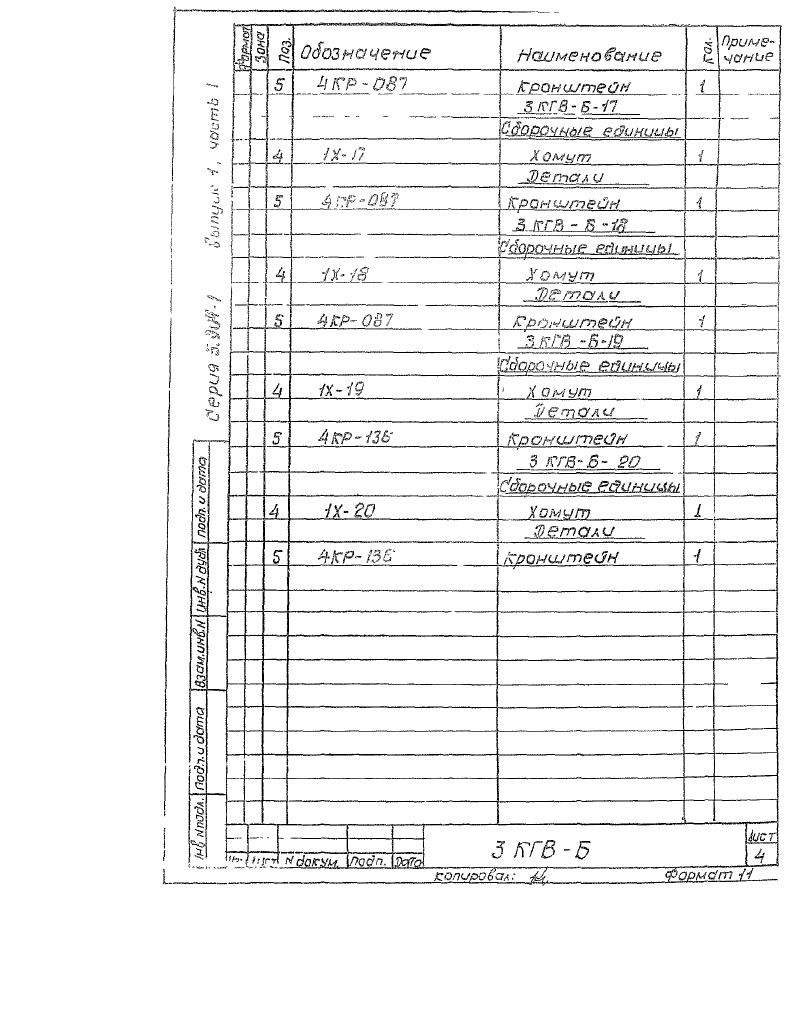 Формат Зона Поз. Обозначение Наименование Кол. Примечание
5 4КР-087 Кронштейн 1
3 КГВ-Б-17
Сборочные единицы
4 1Х-17 Хомут 1
Детали
5 4КР-087 Кронштейн 1
3 КГВ-Б-18
Сборочные единицы
4 1Х-18 Хомут 1
Детали
5 4КР-087 Кронштейн 1
3 КГВ-Б-19
Сборочные единицы
4 1Х-19 Хомут 1
Детали
5 4КР-136 Кронштейн 1
3 КГВ-Б-20
Сборочные единицы
4 1Х-20 Хомут 1
Детали
5 4КР-136 Кронштейн 1
Серия Выпуск 1, часть 1
подп. и дата
Инв.N дубл
Взам.инв.N
Подп. и дата
Инв.N подл.
Лист N докум. Подп. Дата
3 КГВ-Б
Лист
4
Копировал: Формат 11